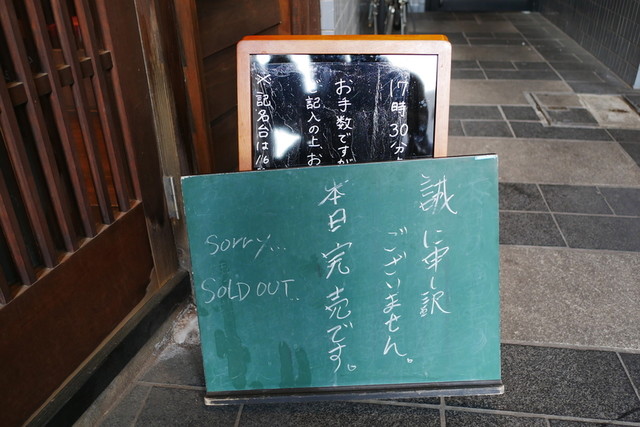 17時30分
お手数ですが
ご記入の上、お
※記名台は16
誠に申し訳
ございません。
本日完売です。
sorry...
SOLD OUT..